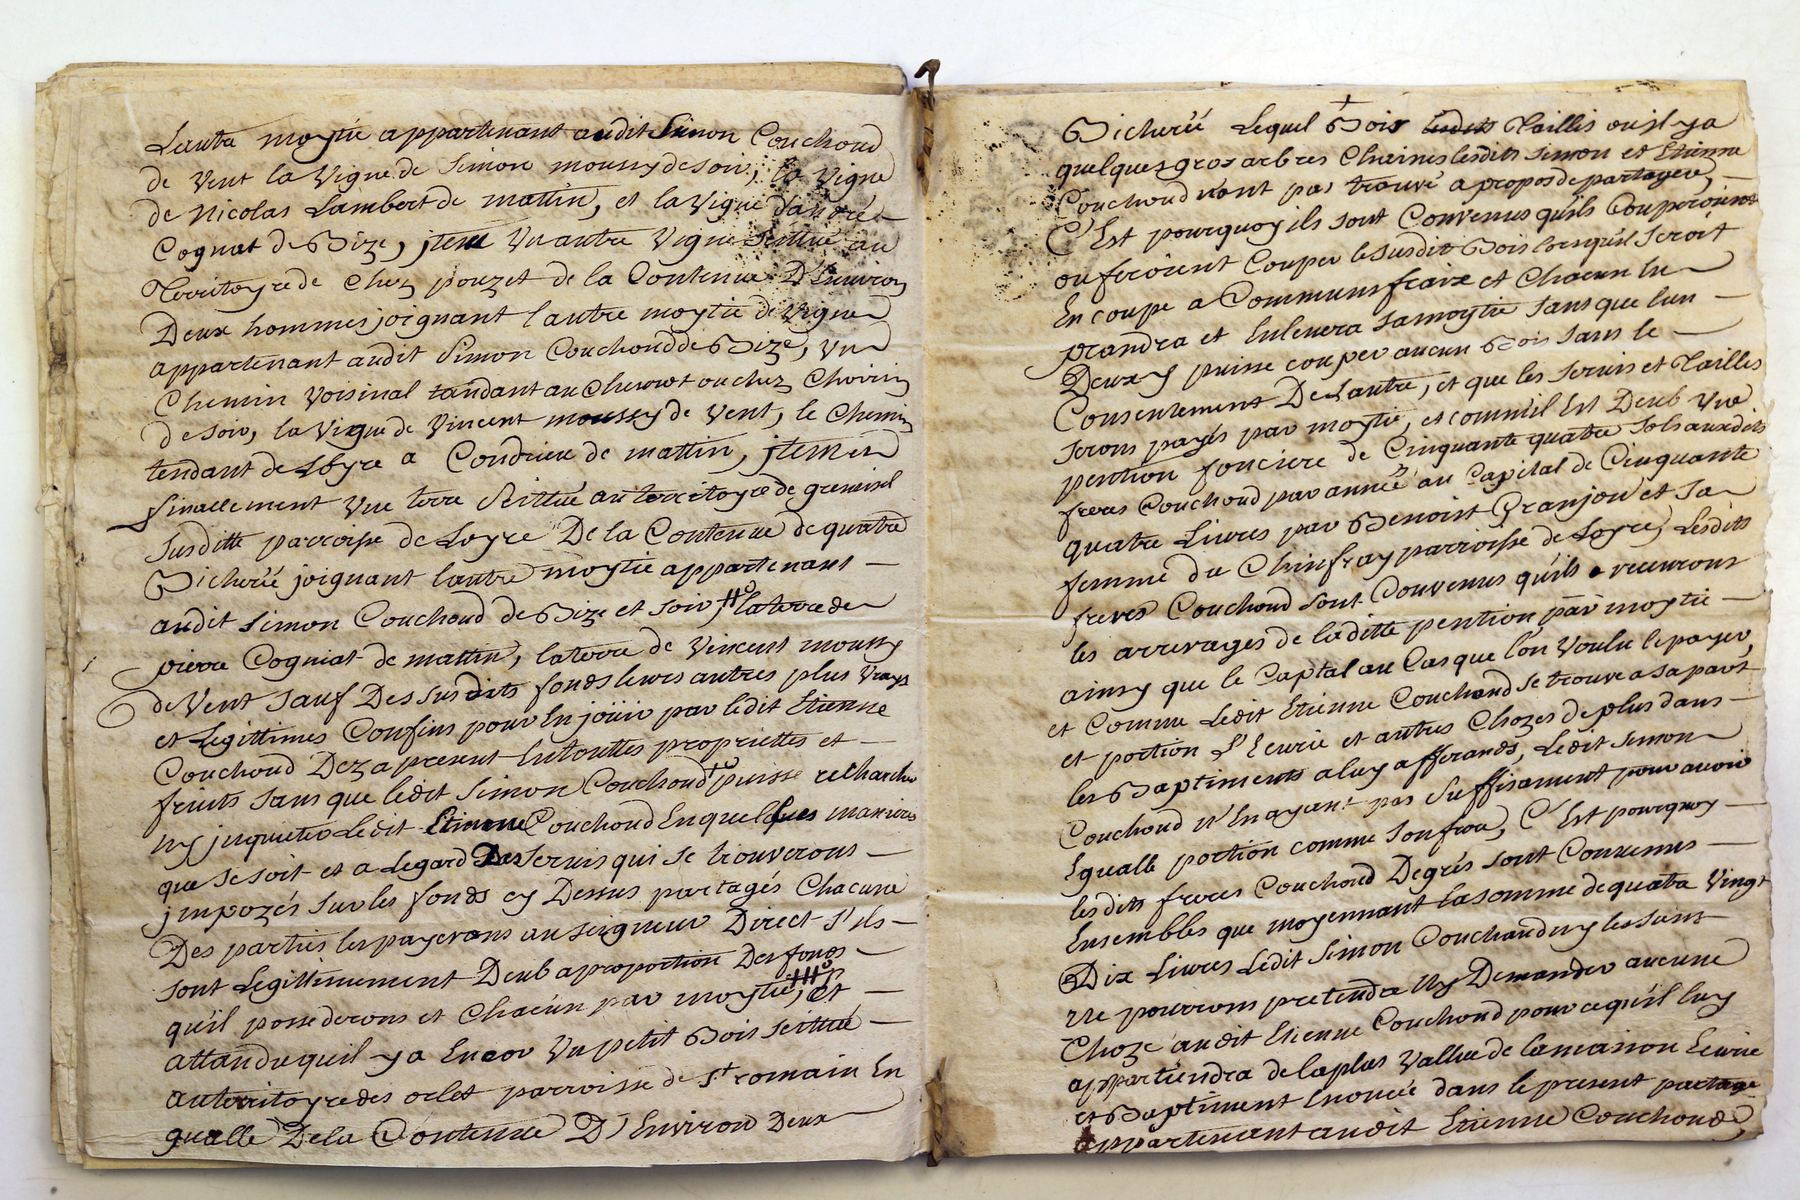 Lautre moytié appartenant audit Simon Couchoud
de vent la vigne de Simon moussy de soir, la vigne
de Nicolas Lambert de mattin, et la vigne d'andré
Cognat de Bize, jtem Vn autre Vigne scittué au
Territoyre de Chez pouzet de la Contenue D'Environ
Deux hommes joignant lautre moytié de Vigne
appartenant audit Simon Couchoud de Bize, vn
Chemin voisinal tandant au ou chez
de soir, la vigne de Vincent moussy de vent, le Chemin
tendant de Loyre a Condrieu de mattin, jtem et
finallement Vne terre scittué au territoyre de
susditte parroisse de Loyre De la Contenue de quatre
Bicherée joignant lautre moytié appartenant
audit Simon Couchoud de Bize et soir, la terre de
pierre Cogniat de mattin, la terre de Vincent moussy
de Vent sauf Des susdits fonds leurs autres plus vrays
et Legittimes Confins pour En joüir par ledit Etienne
Couchoud Dez a present En touttes proprietes et
fruits sans que ledit Simon Couchoud puisse rechercher
ny jnquieter Ledit Etienne Couchoud En quelques manieres
que se soit et a Legard Des servis qui se trouveront
jmpozés sur les fonds cy Dessus partagés Chacune
Des parties les payerons au seigneur Direct s'ils
sont Legittimement Deub a proportion Des fonds
qu'il possederons et Chacun par moytié, Et
attandu quil y a Encor Vn petit Bois scittué
au territoyre des orlet parroisse de St romain En
gualle De la Contenue D'Environ Deux
Bicherée Lequel Bois Taillis ou jl y a
quelques gros arbres Chaines lesdits Simon et Etienne
Couchoud n'ont pas trouvé a propos de partager,
C'Est pourquoy ils sont Convenus qu'ils Couperoient
ou feroient Couper le susdit Bois lorsqu'il seroit
En coupe a Communs fraix et Chacun En
prandra et Enlevera sa moytié sans que lun
Deux y puisse couper aucun Bois sans le
Consentement De Lautre, et que les servis et Tailles
serons payés par moytié, et comm'il Est Deub Vne
pention fonciere de Cinquante quatre sols auxdits
freres Couchoud par année au Capital de Cinquante
quatre Livres par Benoist Granjon et sa
femme du Chinfray parroisse de Loyre, Lesdits
freres Couchoud sont Convenus qu'ils recevrons
les arrerages de laditte pention par moytié
ainsy que le Captal au Cas que l'on voulu le payer,
et Comme Ledit Etienne Couchoud se trouve a sa part
et portion L'Ecurie et autres Chozes de plus dans
les Baptiments a luy afferands, Ledit Simon
Couchoud N'En ayant pas suffisament pour avoir
Egualle portion comme son frere, C'Est pourquoy
les dits freres Couchoud Degrés sont Convenus
Ensembles que moyennant la somme de quatre Vingt
Dix Livres Ledit Simon Couchoud ny les siens
Ne pourrons pretendre Ny Demander aucune
Choze audit Etienne Couchoud pour ce qu'il luy
appartiendra de la plus Vallue de la maison Ecurie
et Baptiment Enoncée dans le present partage
appartenant audit Etienne Couchoud,